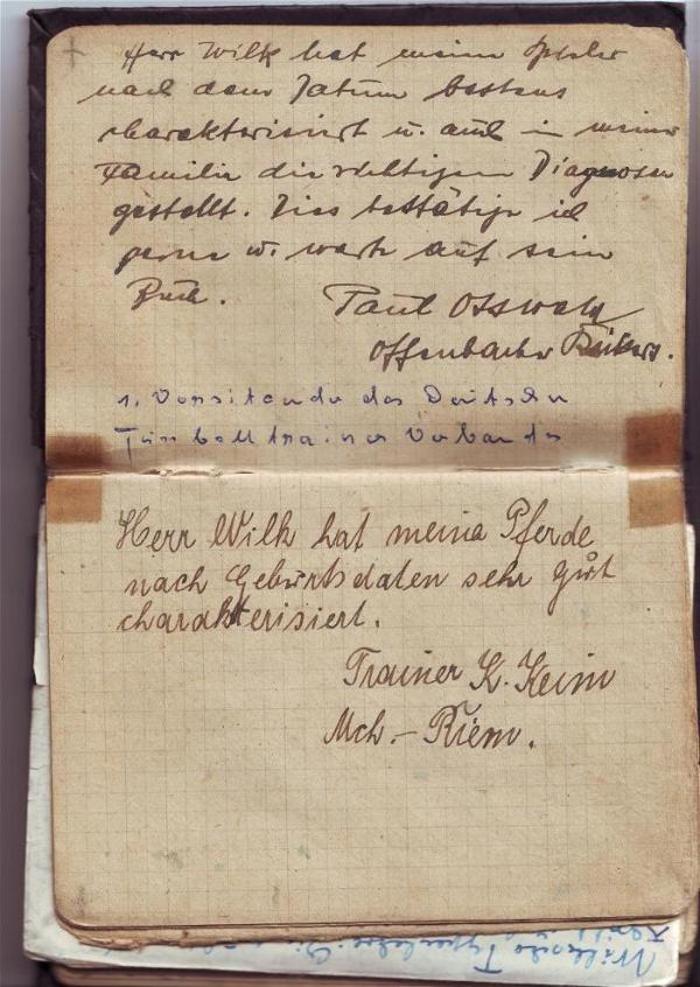 Herr Wilk hat meine Spieler
nach dem Datum bestens
charakterisiert u. auch in meiner
Familie die richtigen Diagnosen
gestellt. Dies bestätige ich
gerne u. warte auf sein
Buch.
Paul Osswald
Offenbacher Kickers.
1. Vorsitzender des Deutschen
Fussballtrainer Verbandes
Herr Wilk hat meine Pferde
nach Geburtsdaten sehr gut
charakterisiert.
Trainer K. Keim
Mch. – Riem.